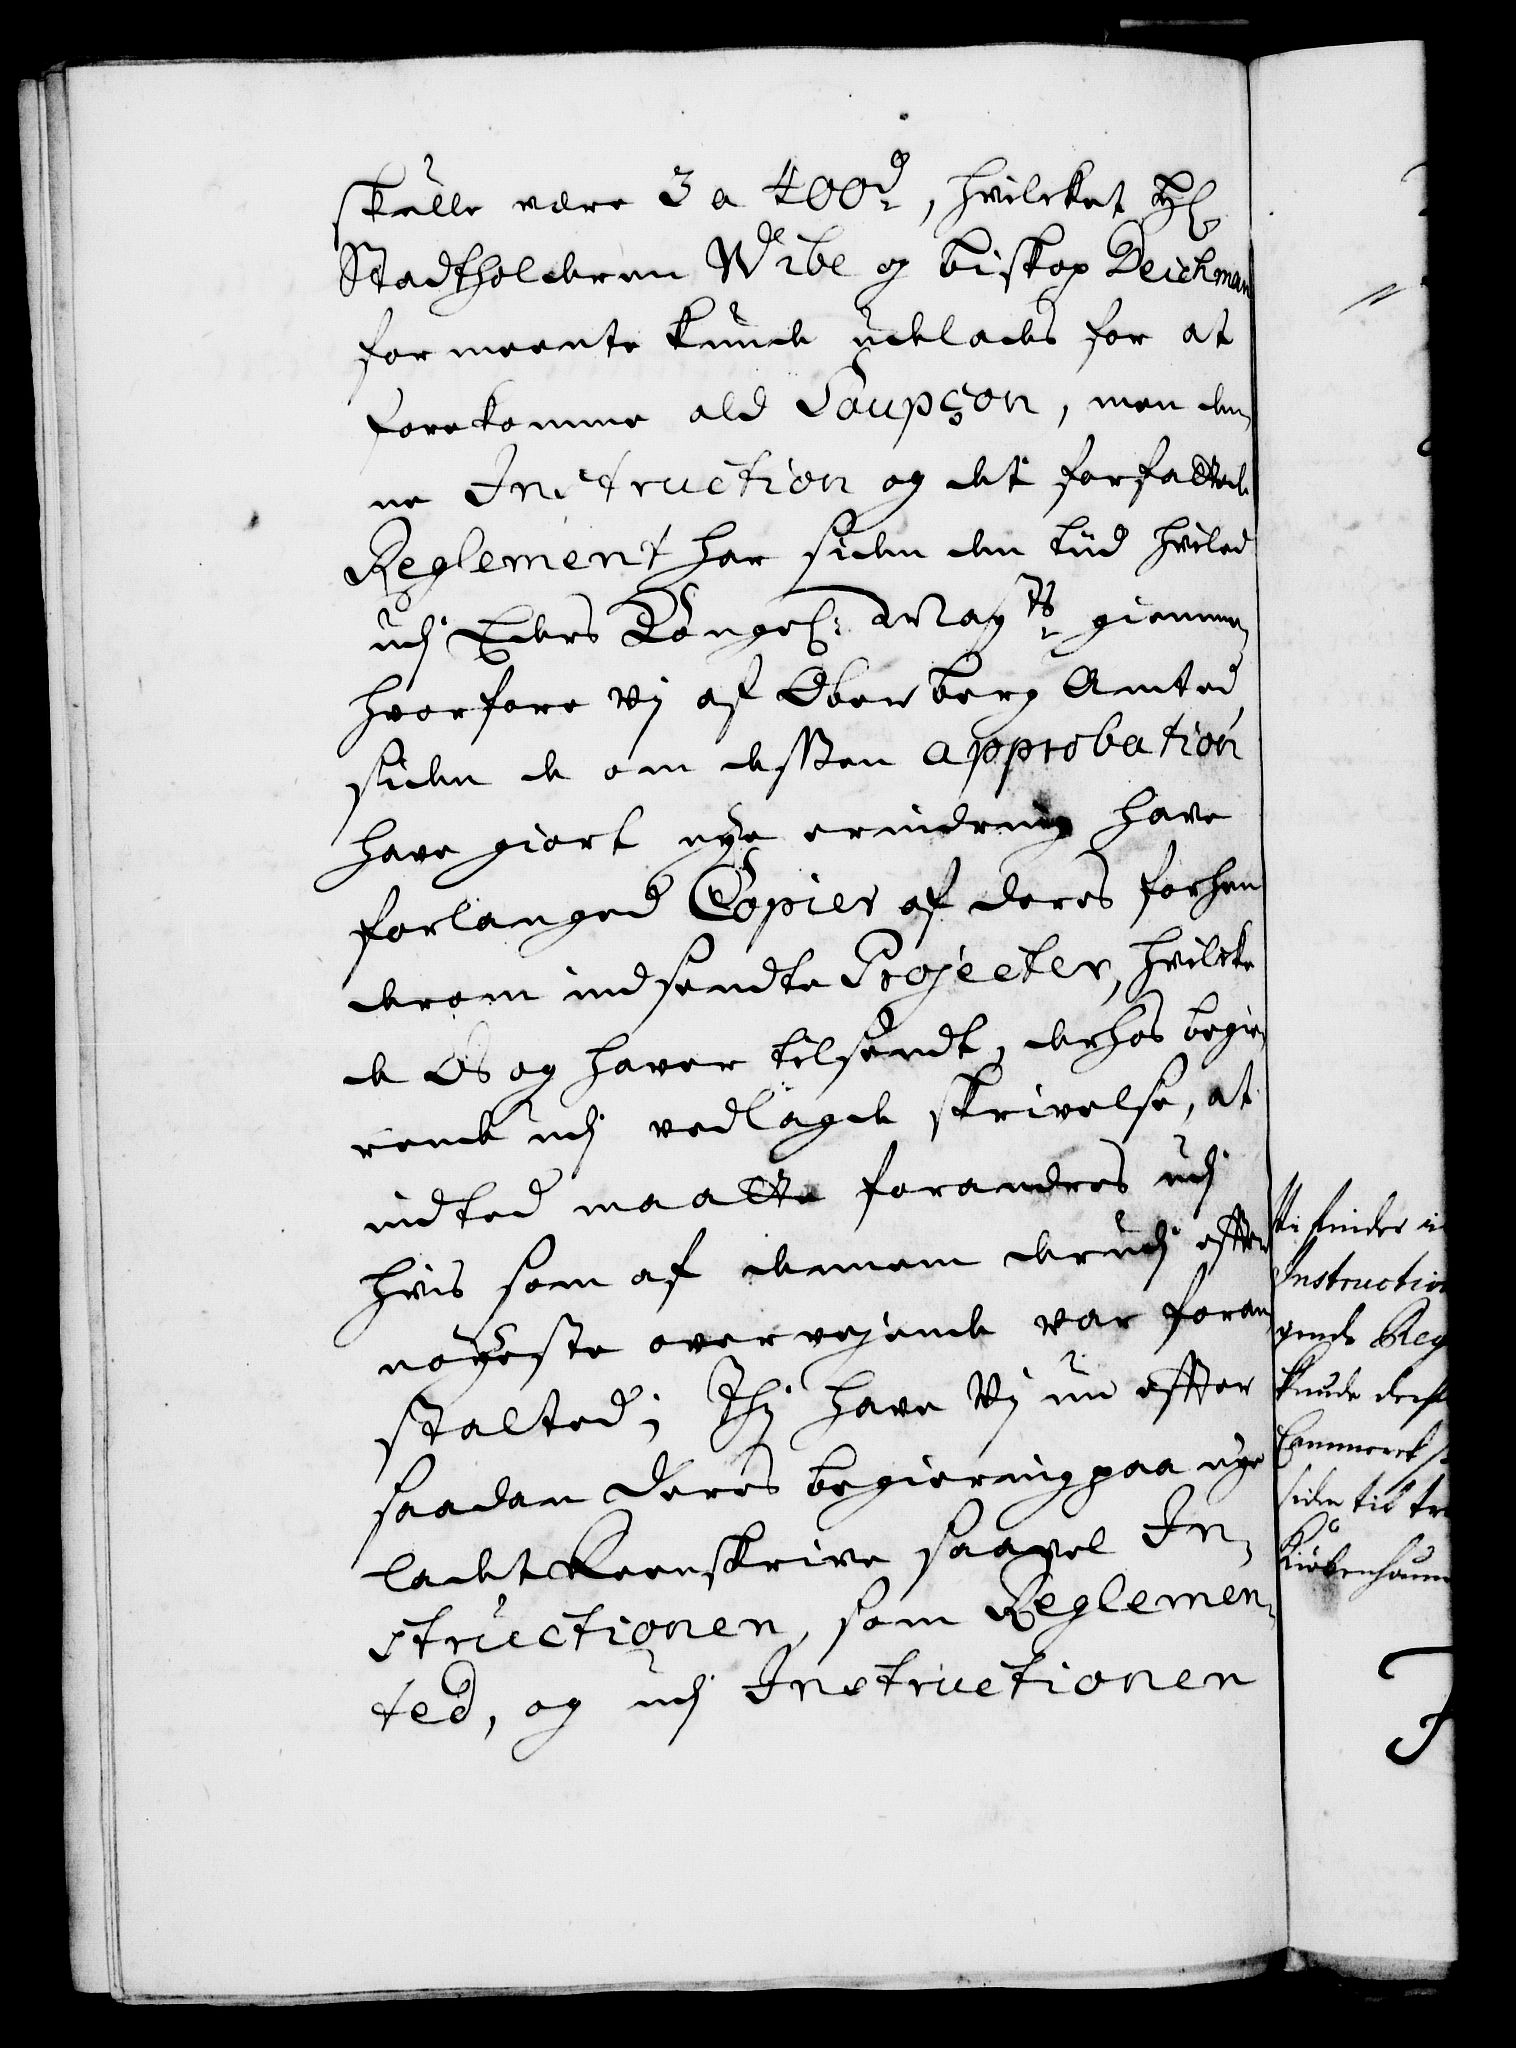 skulle være 3 a 400 d:, hvilcket H:
Stadtholderen Wibe og biskop Deichman
formeente kunde udelades for at
forekomme ald Soupçon, men den-
ne Instruction og det forfattede
Reglement har siden den tiid hviled
udj Eders Kongel: May:ts giemme,
hvorfore Vj af Ober berg Amted
siden de om deßen approbation
have giort nye erindring have
forlanged Copier af deres forhen
derom indsendte Projecter, hvilcke
de Os og haver tilsendt, derhos begie-
rende udj vedlagde skrivelse, at
indted maatte forandres udj
hvis som af dennem derudj effter
nøyeste overvejende var foran
stalted; Thj have Vj nu effter
saadan deres begiering paa nye
ladet Reenskrive saavel In-
structionen, som Reglemen-
ted, og udj Instructionen
Vi finder i
Instruction
gende Reg
kunde
siden til
Kiøbenhaun